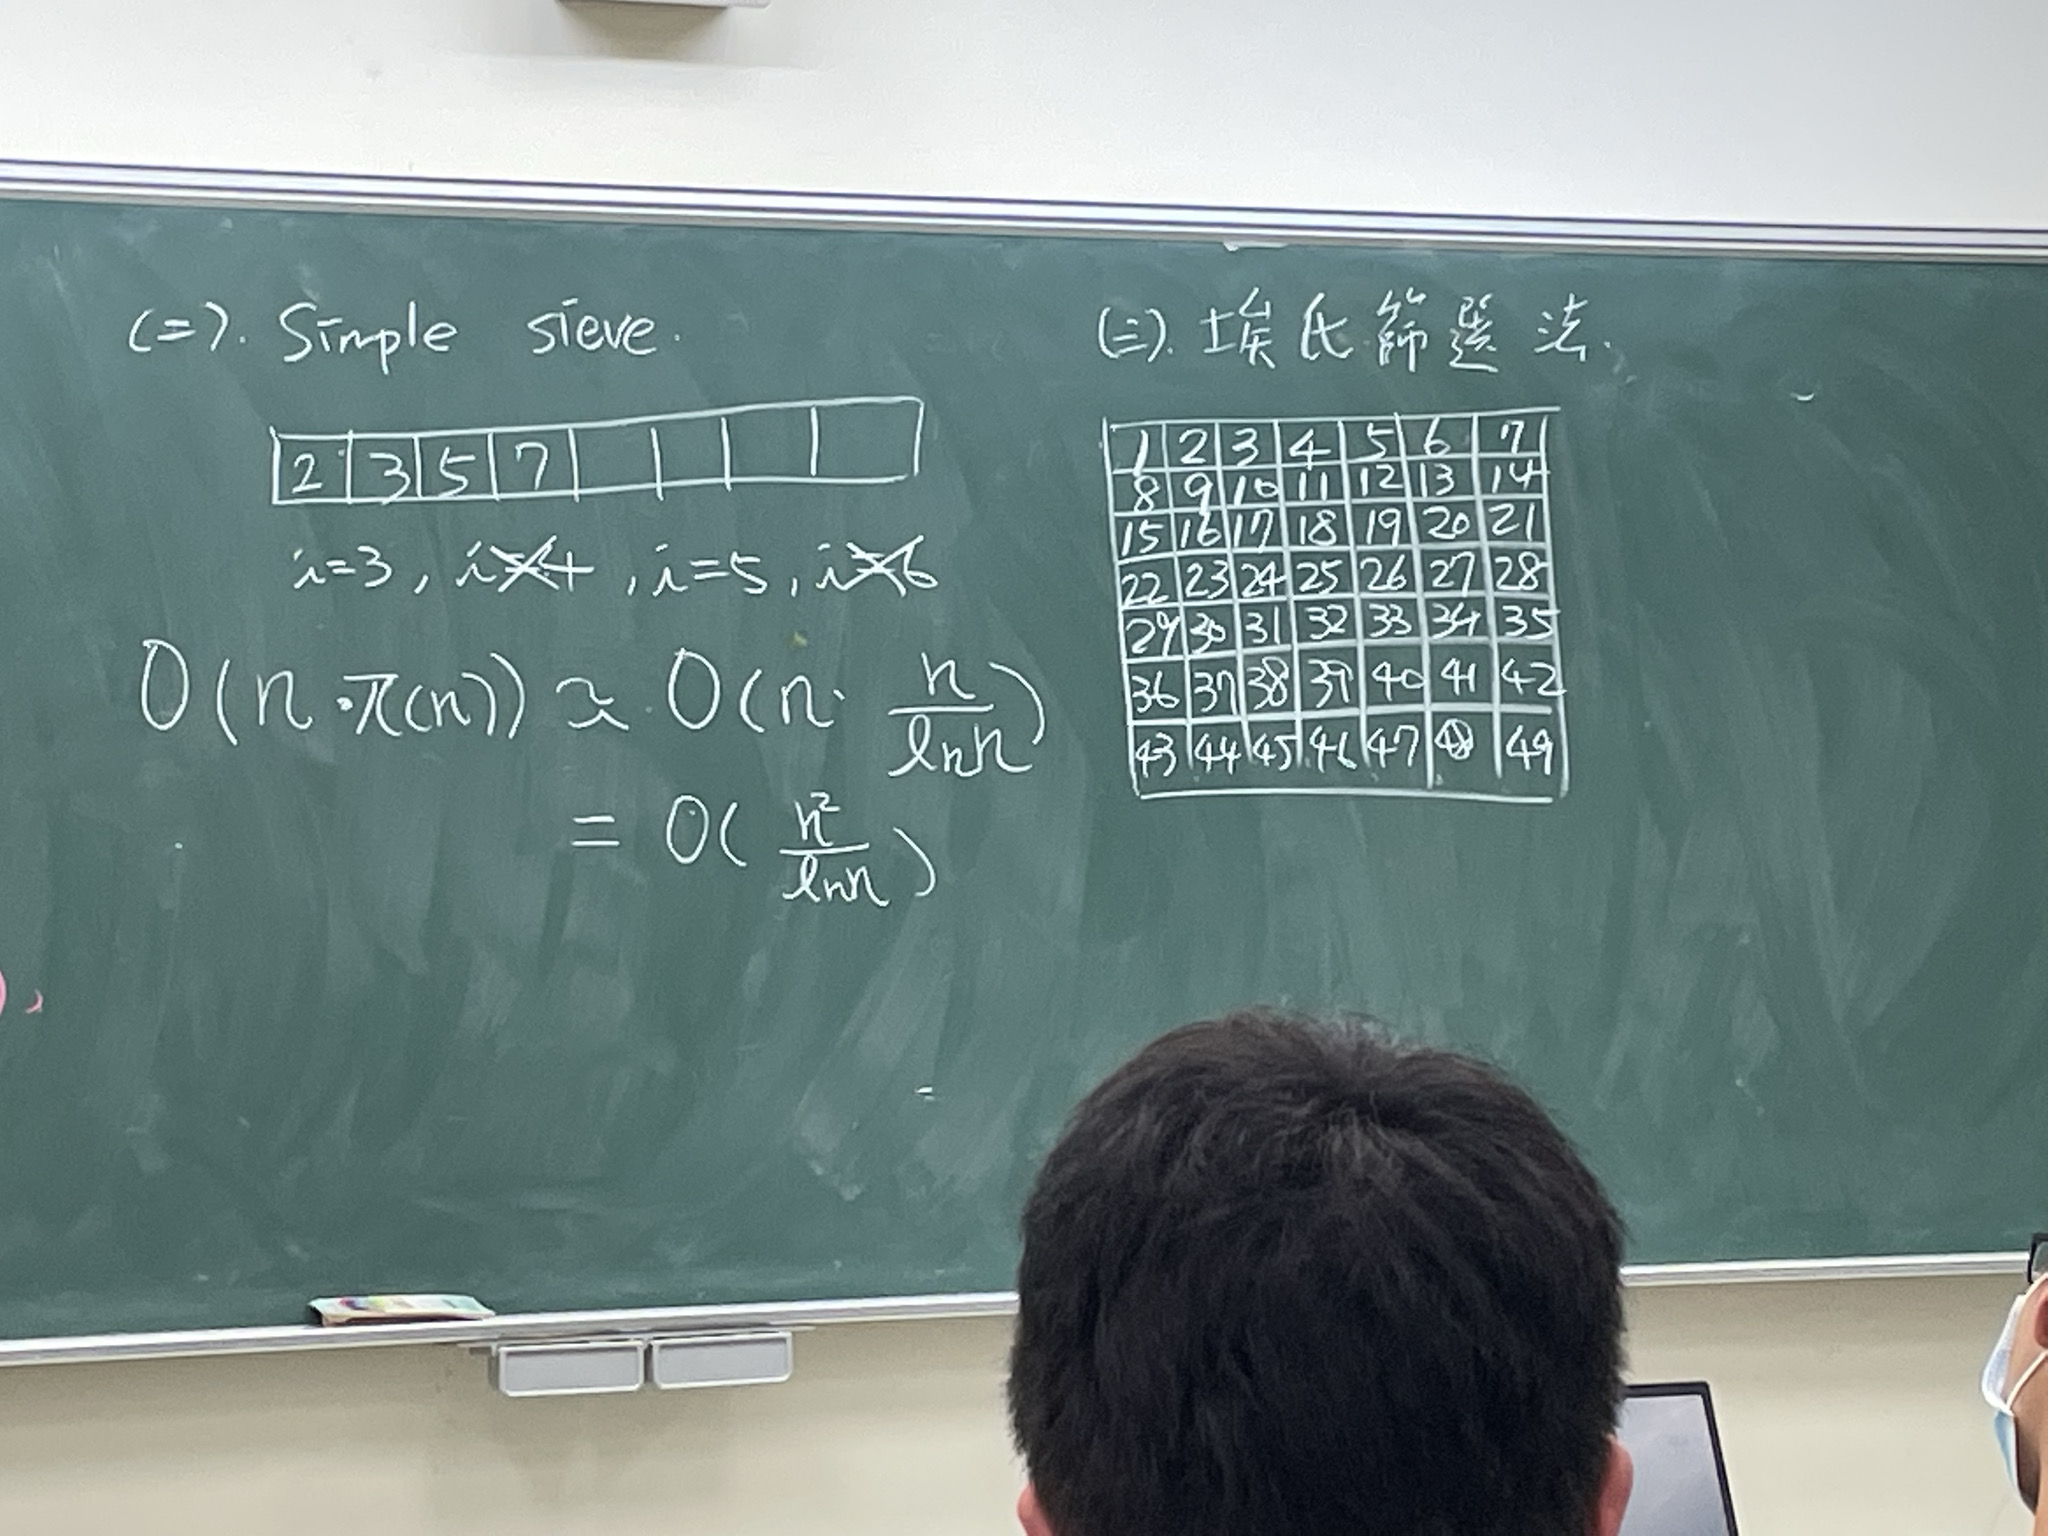 (二). Simple sieve.
2 3 5 7
i=3, i=4, i=5, i=6
O(n·π(n)) ≈ O(n· n/lnn)
= O( n²/lnn )
(三). 埃氏篩選法.
1 2 3 4 5 6 7
8 9 10 11 12 13 14
15 16 17 18 19 20 21
22 23 24 25 26 27 28
29 30 31 32 33 34 35
36 37 38 39 40 41 42
43 44 45 46 47 48 49